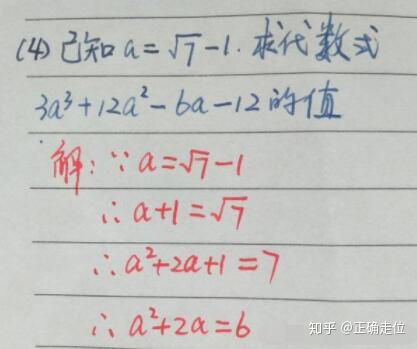 (4) 已知 a = √7 - 1. 求代数式
3a³ + 12a² - 6a - 12 的值
解: ∵ a = √7 - 1
∴ a + 1 = √7
∴ a² + 2a + 1 = 7
∴ a² + 2a = 6
知乎 @正确走位